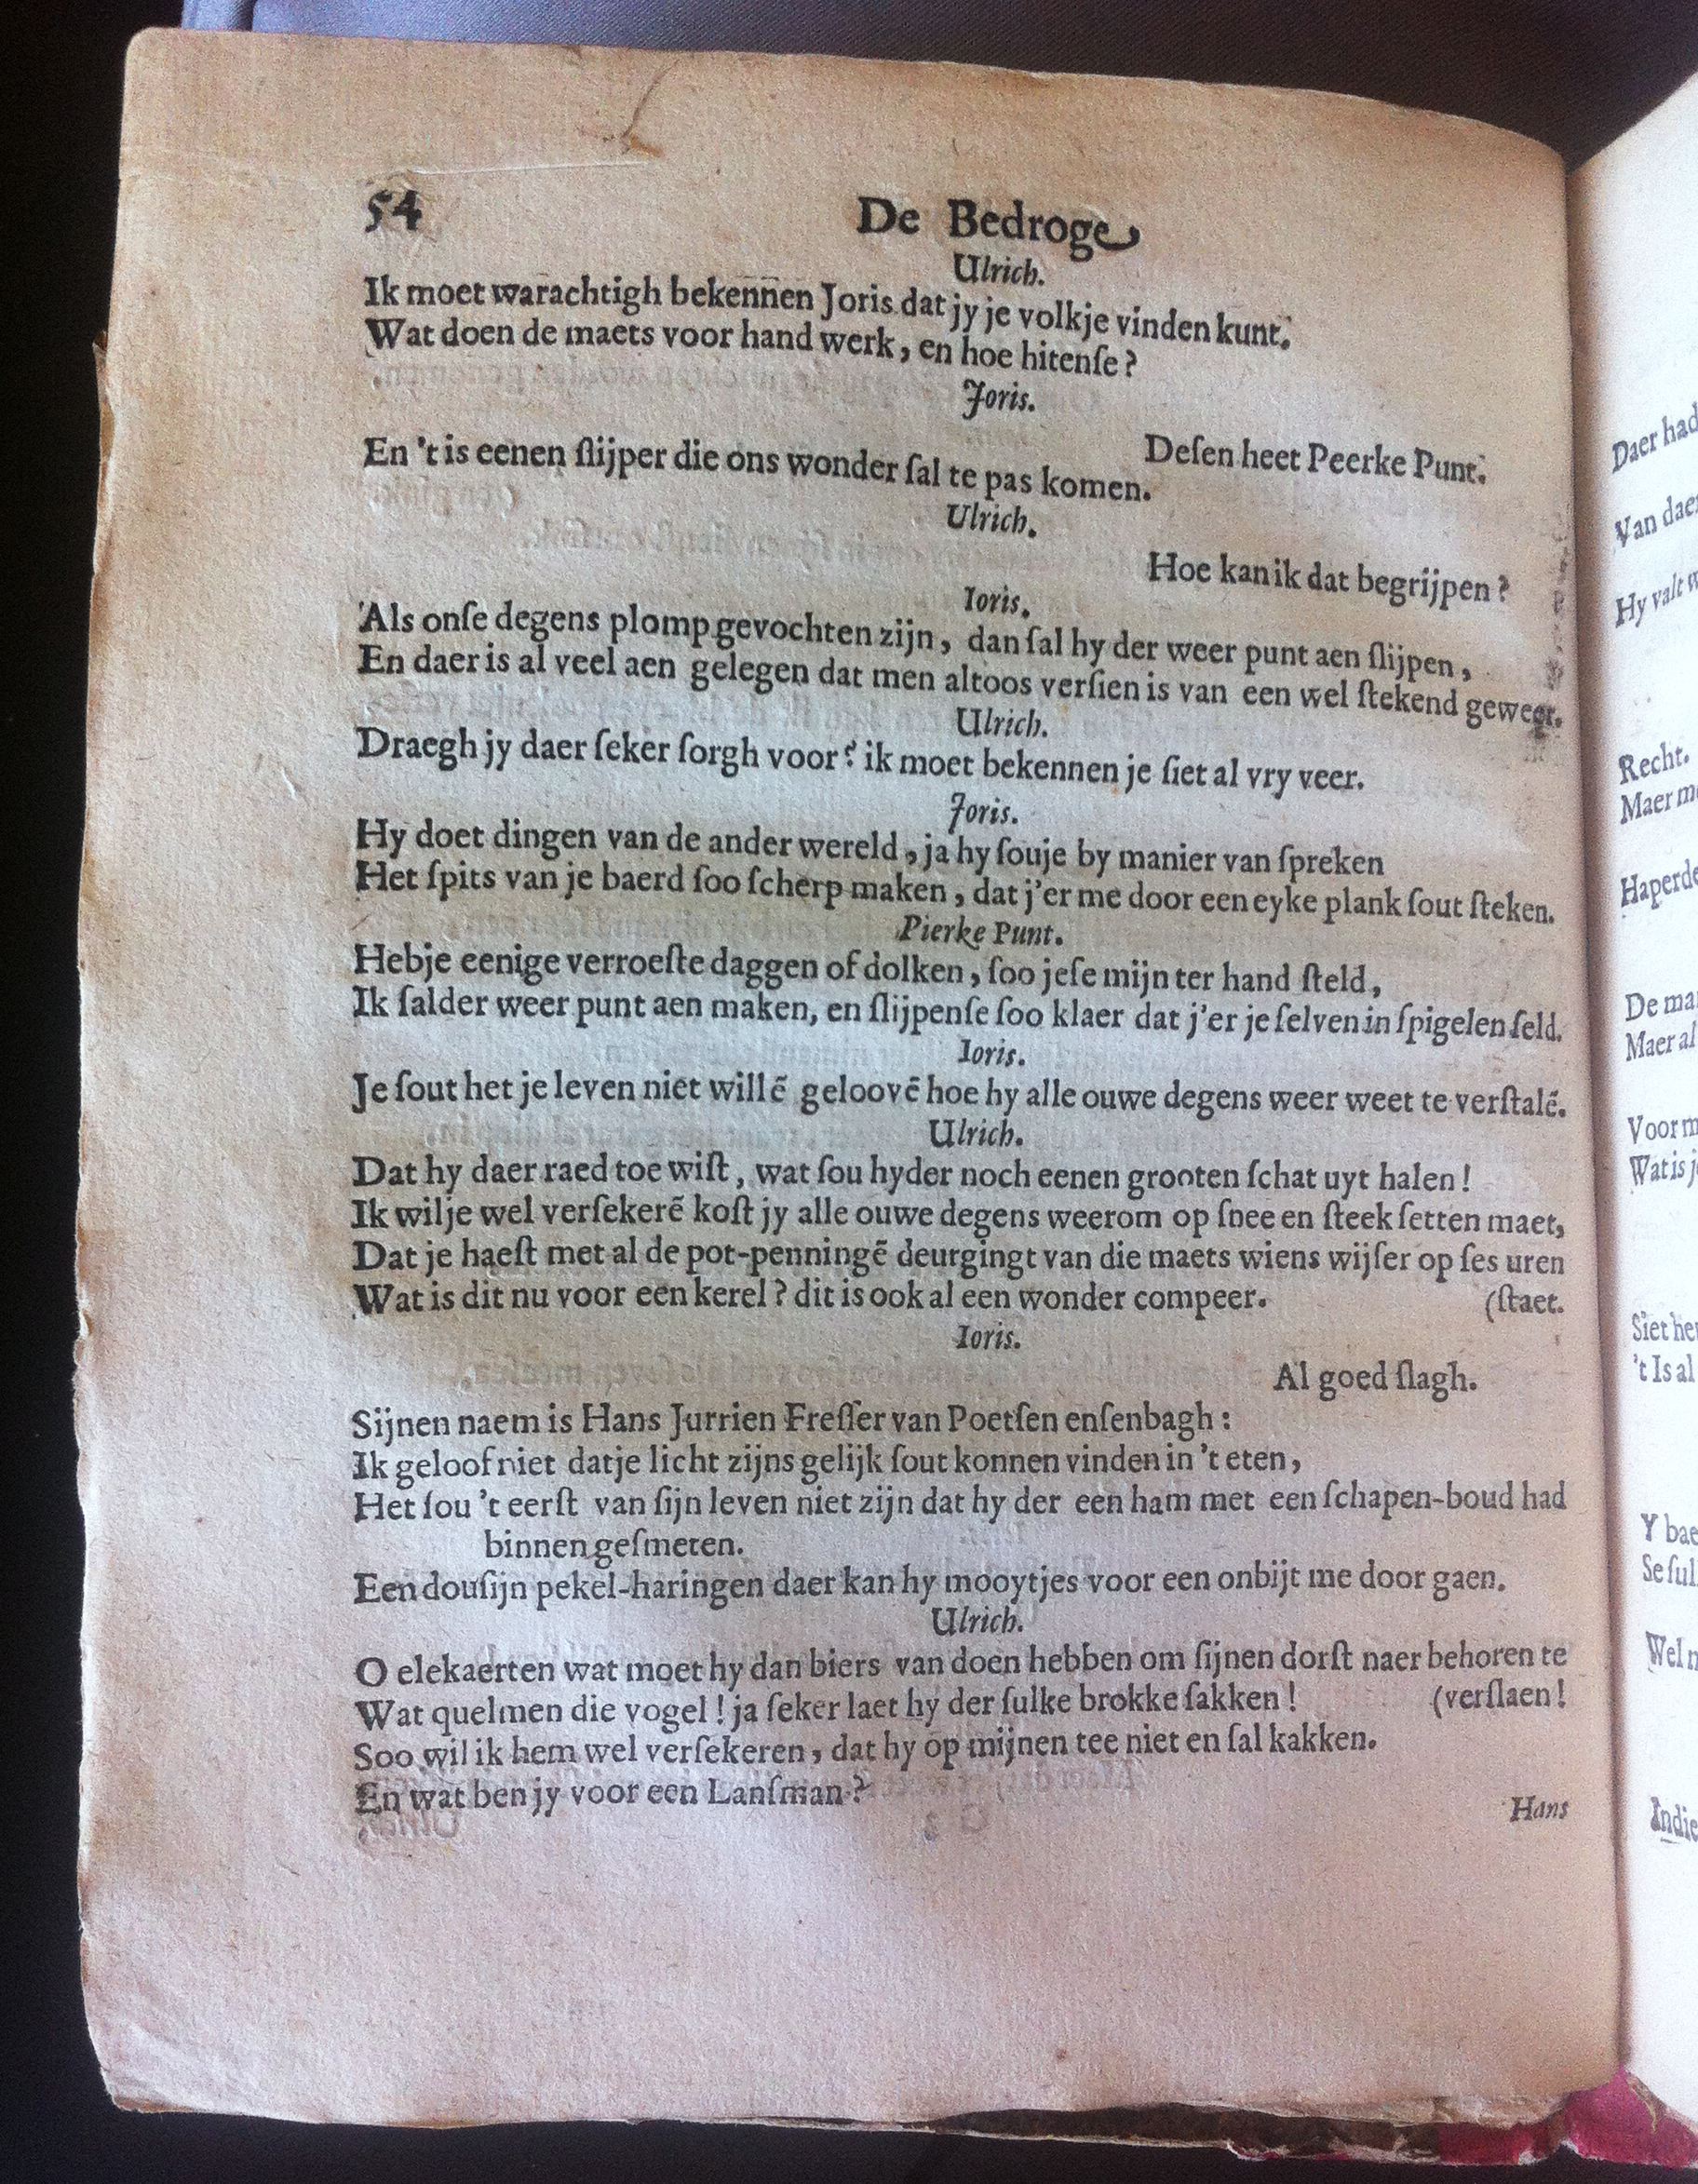 54 De Bedroge
Ulrich.
Ik moet warachtigh bekennen Joris dat jy je volkje vinden kunt.
Wat doen de maets voor hand werk, en hoe hitenſe?
Joris.
Deſen heet Peerke Punt.
En 't is eenen ſlijper die ons wonder ſal te pas komen.
Ulrich.
Hoe kan ik dat begrijpen?
Ioris.
Als onſe degens plomp gevochten zijn, dan ſal hy der weer punt aen ſlijpen,
En daer is al veel aen gelegen dat men altoos verſien is van een wel ſtekend geweer.
Ulrich.
Draegh jy daer ſeker ſorgh voor? ik moet bekennen je ſiet al vry veer.
Joris.
Hy doet dingen van de ander wereld, ja hy ſouje by manier van ſpreken
Het ſpits van je baerd ſoo ſcherp maken, dat j'er me door een eyke plank ſout ſteken.
Pierke Punt.
Hebje eenige verroeſte daggen of dolken, ſoo jeſe mijn ter hand ſteld,
Ik ſalder weer punt aen maken, en ſlijpenſe ſoo klaer dat j'er je ſelven in ſpigelen ſeld.
Ioris.
Je ſout het je leven niet willẽ geloovẽ hoe hy alle ouwe degens weer weet te verſtalẽ.
Ulrich.
Dat hy daer raed toe wiſt, wat ſou hyder noch eenen grooten ſchat uyt halen!
Ik wilje wel verſekerẽ koſt jy alle ouwe degens weerom op ſnee en ſteek ſetten maet,
Dat je haeſt met al de pot-penningẽ deurgingt van die maets wiens wijſer op ſes uren
Wat is dit nu voor een kerel? dit is ook al een wonder compeer. (ſtaet.
Ioris.
Al goed ſlagh.
Sijnen naem is Hans Jurrien Freſſer van Poetſen enſenbagh:
Ik geloof niet datje licht zijns gelijk ſout konnen vinden in 't eten,
Het ſou 't eerſt van ſijn leven niet zijn dat hy der een ham met een ſchapen-boud had
binnen geſmeten.
Een douſijn pekel-haringen daer kan hy mooytjes voor een onbijt me door gaen.
Ulrich.
O elekaerten wat moet hy dan biers van doen hebben om ſijnen dorſt naer behoren te
Wat quelmen die vogel! ja ſeker laet hy der ſulke brokke ſakken! (verſlaen!
Soo wil ik hem wel verſekeren, dat hy op mijnen tee niet en ſal kakken.
En wat ben jy voor een Lanſman?
Hans
Daer had
Van daer
Hy valt
Recht.
Maer
Haperde
De
Maer al
Voor
Wat is
Siet
't Is al
Y
Se
Wel
Indie